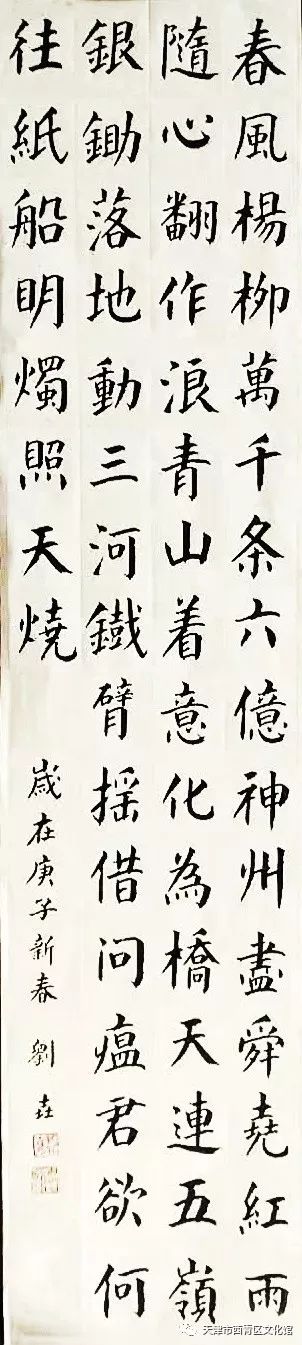 春風楊柳萬千条六億神州盡舜堯紅雨
隨心翻作浪青山着意化為橋天連五嶺
銀鋤落地動三河鐵臂揺借问瘟君欲何
往紙船明燭照天燒
歲在庚子新春 劉垚
天津市西青区文化馆